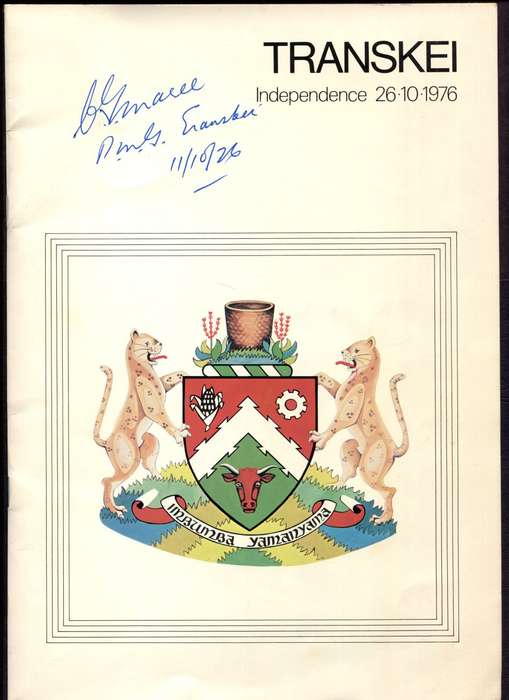 TRANSKEI
Independence 26·10·1976
Transkei
11/10/76
IMBUMBA YAMANYAMA